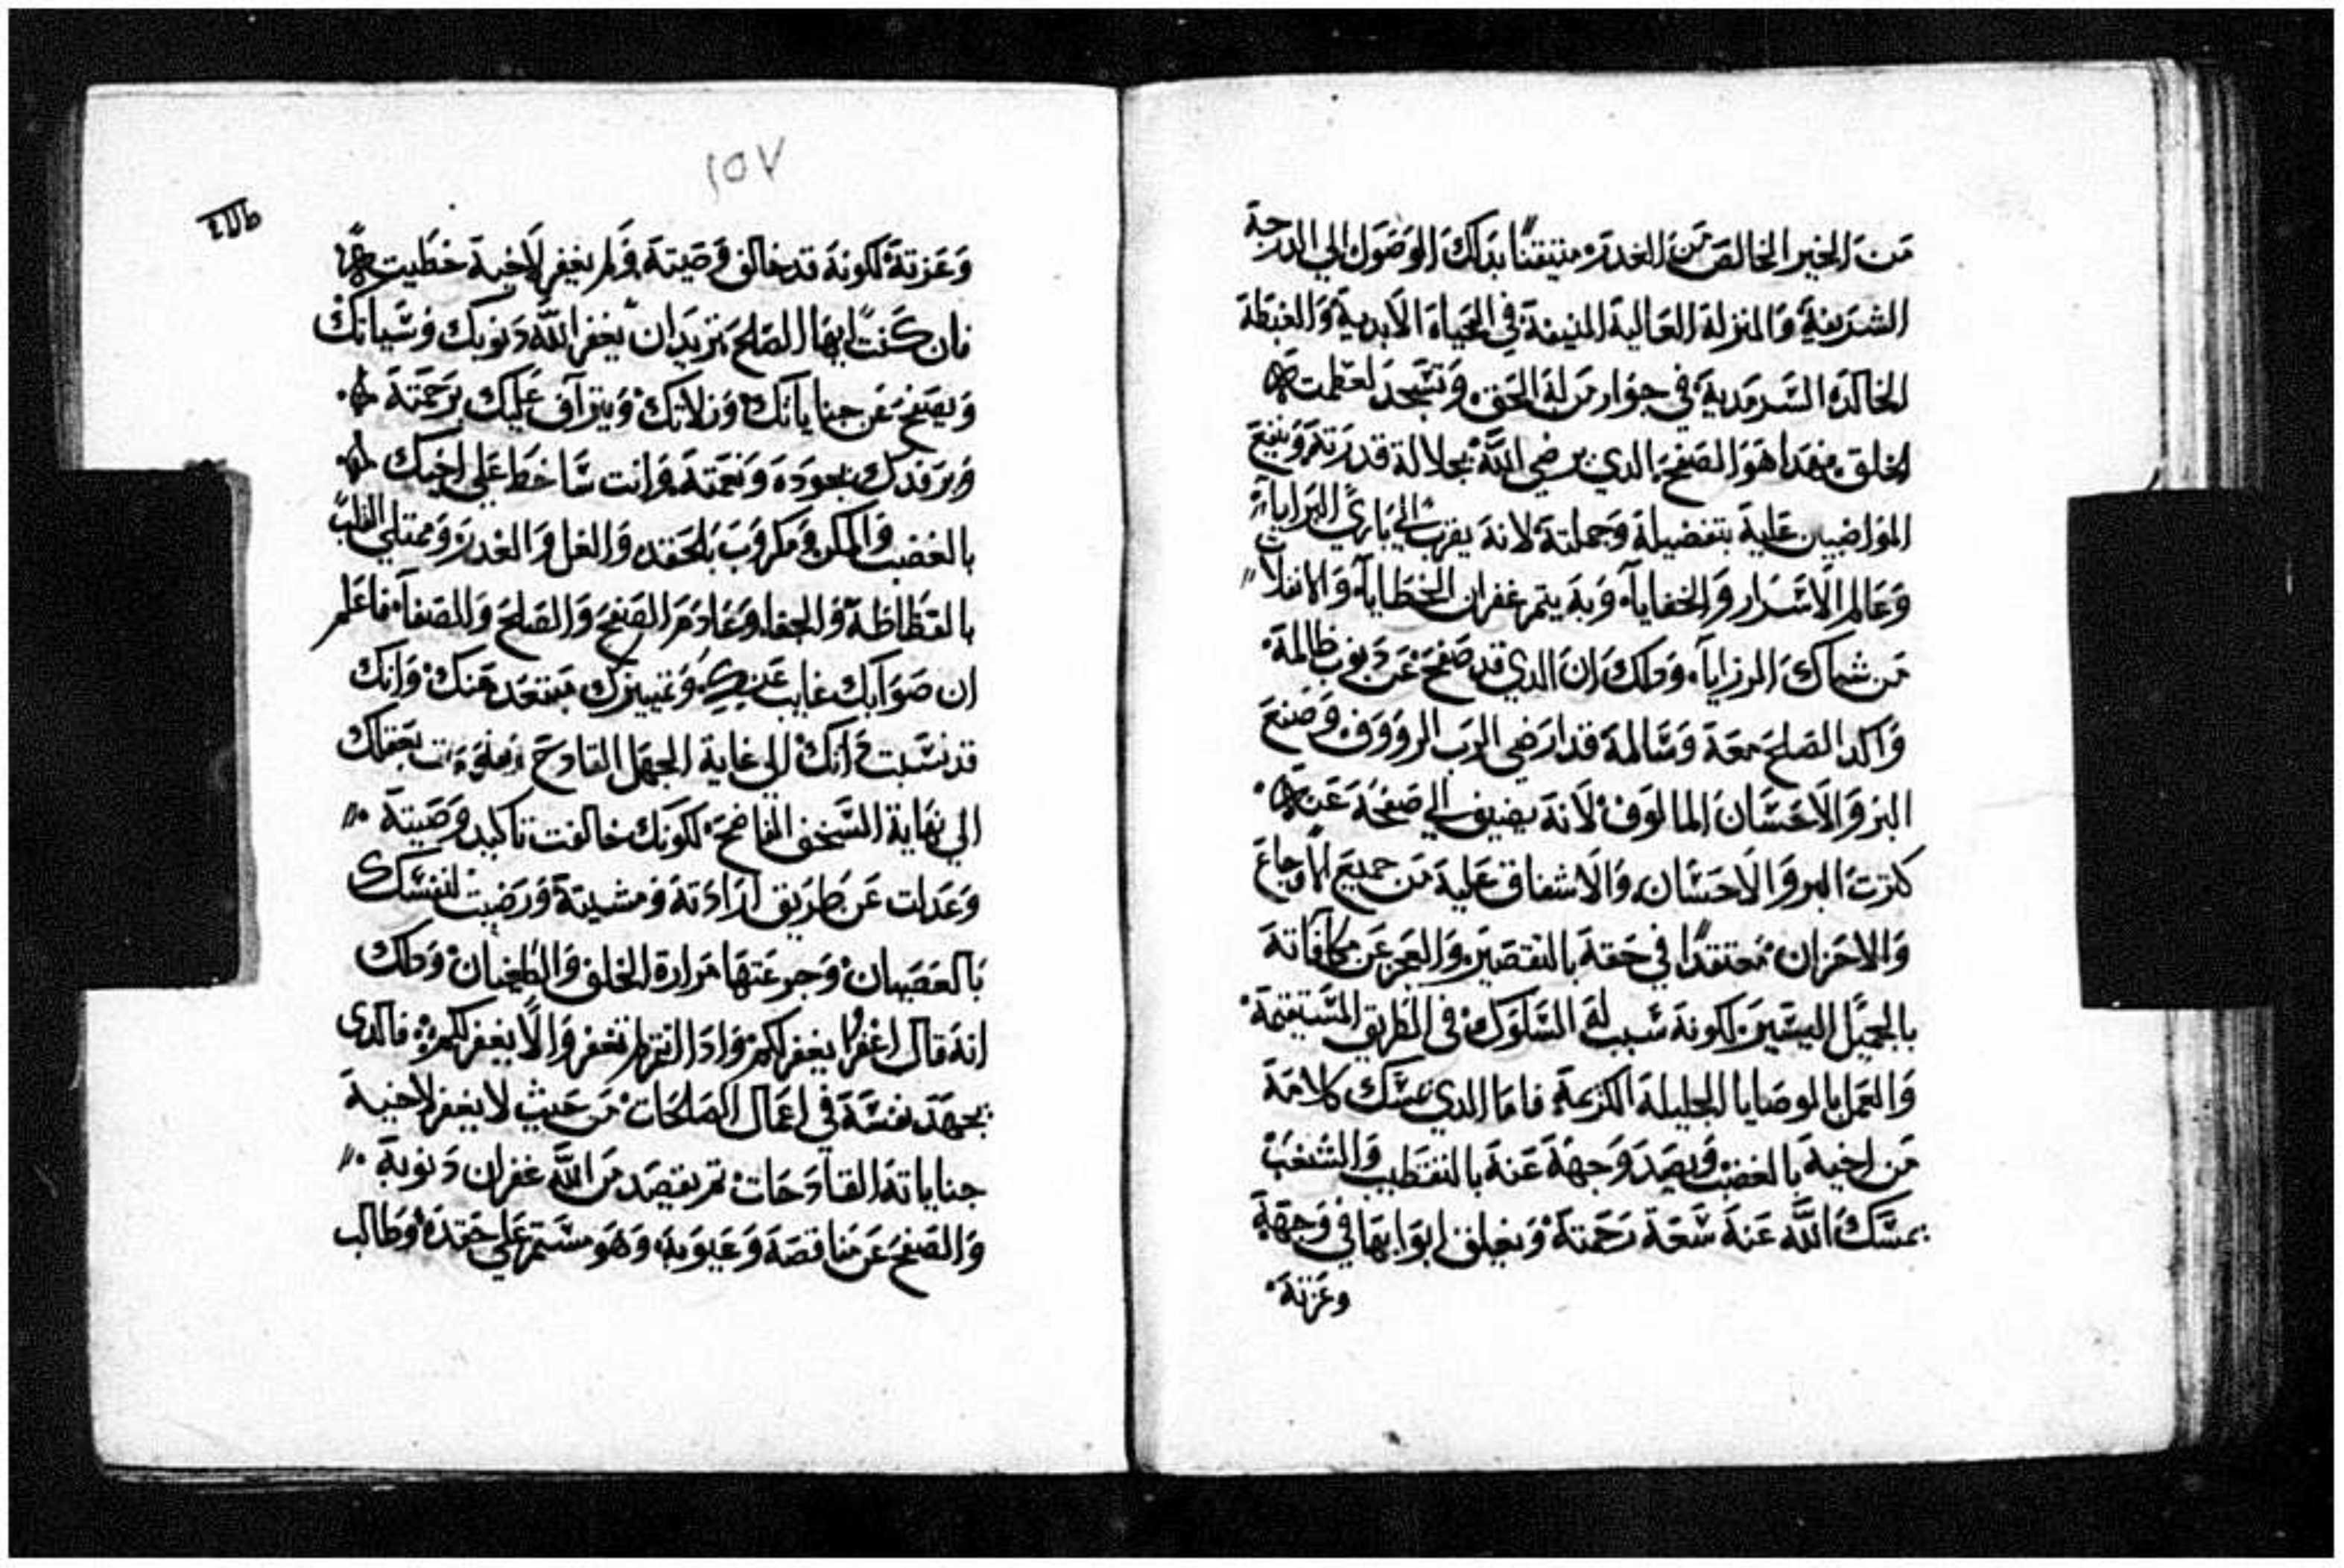 من الخير الخالص من الغدر متيقنًا بدلك الوصول الي الدرجة
الشريفة والمنزلة العالية المنيفة في الحياة الابدية والغبطة
الخالدة السرمدية في جوار من له الحق وتسجد لعظمته
الخلق فهدا هو الصفح الدي يرضي اللّه بجلالة قدرته وينفع
المواضبين علية بتفضيلة وجملتة لانة يقرب الي باري البرايا
وعالم الاسرار والخفايا وبة يتم غفران الخطايا والانفلات
من شباك الرزايا ودلك ان الدي قد صفح عن دنوب ظالمة
واكد الصلح معة وسالمة قد ارضي الرب الرووف وصنع
البر والاحسان المالوف لانة يضيف الي صفحة عنة
كترت البر والاحسان والاشفاق علية من جميع الاوجاع
والاحزان معتقدًا في حقة بالتقصير والعجز عن مكافاتة
بالجميل اليسير لكونة سبب له السلوك في الطريق المستقيمة
والعمل بالوصايا الجليلة الكريمة فاما الدي يمسك كلامة
من اخية بالغضب ويصد وجهة عنة بالتقطيب والشغب
يمسك اللّه عنة سعة رحمتة ويغلق ابوابها في وجهة
وعزتة
١٥٧
وعزتة لكونة قد خالف وصيتة ولم يغفر لاخية خطيتة
فان كنت ايها الصالح تريد ان يغفر اللّه دنوبك وسياتك
ويصفح عن جناياتك وزلاتك ويتراف عليك برحمتة
ويرفدك بجوده ونعمتة وانت ساخط علي اخيك
بالغضب والمكر ومكروب بالحقد والغل والغدر وممتلي القلب
بالفظاظة والجفا وعادم الصفح والصلح والصفا فاعلم
ان صوابك غايب عنك وتمييزك مبتعد منك وانك
قد نسبت دانك الي غاية الجهل القادح بعقلك
الي نهاية السخف الفاضح لكونك خالفت تاكيد وصيتة
وعدلت عن طريق ارادتة ومشيتة ورضيت لنفسك
بالعصيان وجرعتها مرارة الخلف والطغيان ودلك
انة قال اغفروا يغفر لكم وادا انتم لم تغفروا لا يغفر لكم فالدي
يجهد نفسة في اعمال الصلحات من حيث لا يغفر لاخية
جناياتة القادحات تم يقصد من اللّه غفران دنوبة
والصفح عن مناقصة وعيوبة وهو مستمر علي حقدة وطالب